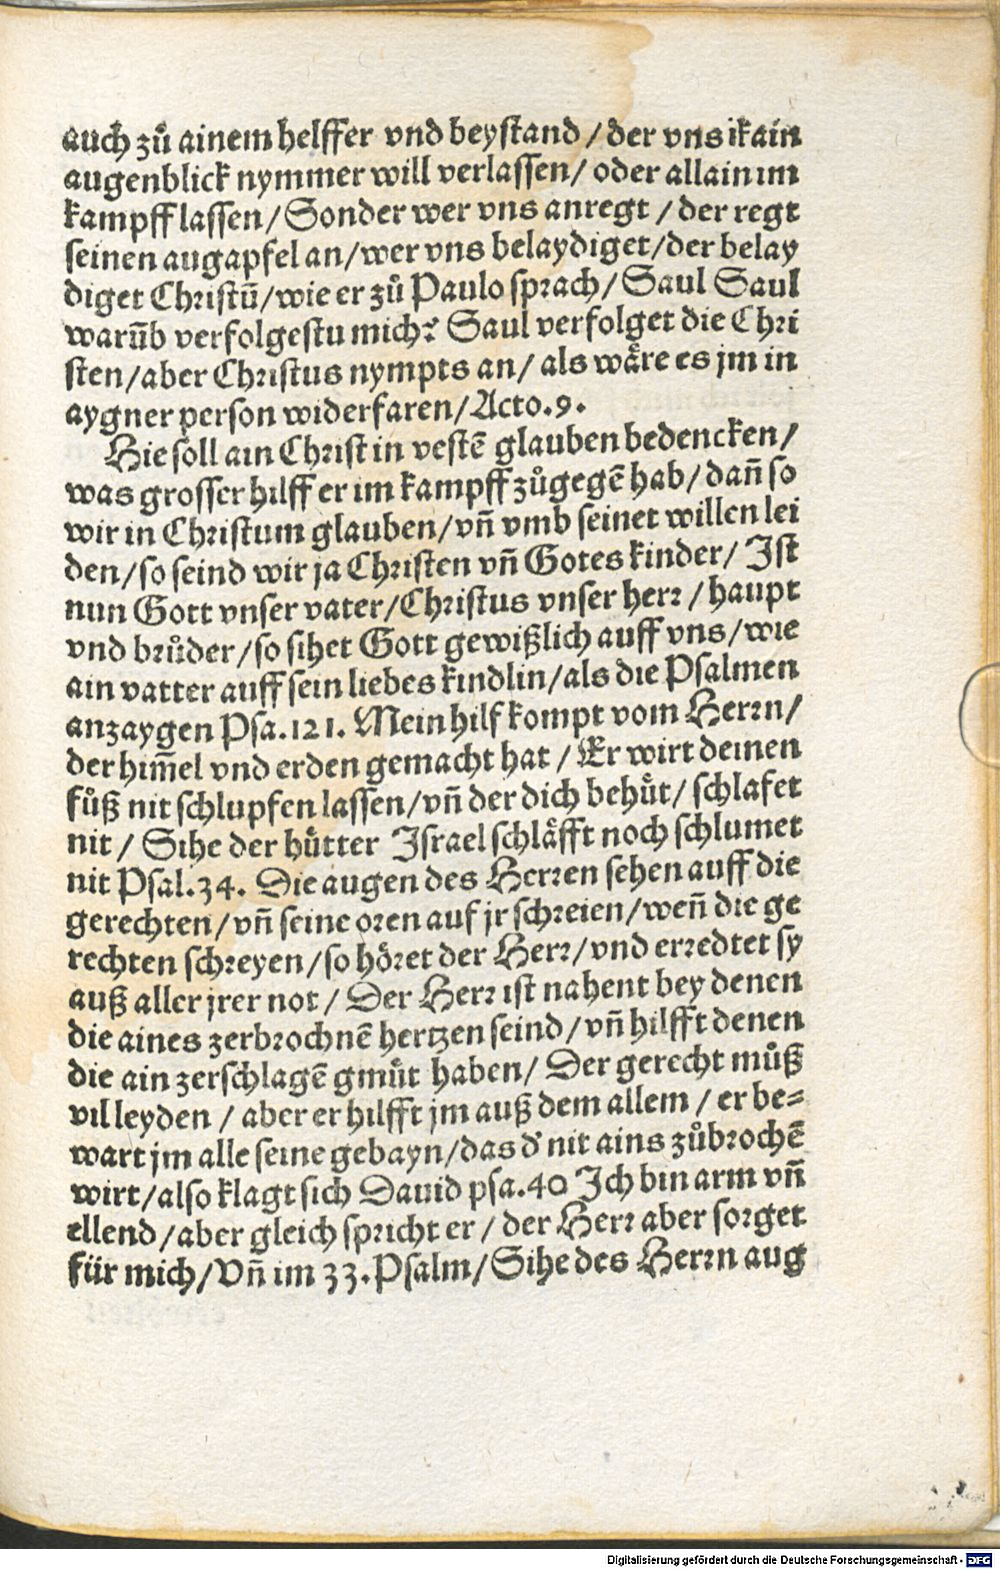 auch zů ainem helffer vnd beystand / der vns ikain
augenblick nymmer will verlassen / oder allain im
kampff lassen / Sonder wer vns anregt / der regt
seinen augapfel an / wer vns belaydiget / der belay
diget Christū / wie er zů Paulo sprach / Saul Saul
warūb verfolgestu mich? Saul verfolget die Chri
sten / aber Christus nympts an / als wäre es jm in
aygner person widerfaren / Acto.9.
Hie soll ain Christ in vestē glauben bedencken /
was grosser hilff er im kampff zůgegē hab / dañ so
wir in Christum glauben / vñ vmb seinet willen lei
den / so seind wir ja Christen vñ Gotes kinder / Ist
nun Gott vnser vater / Christus vnser herr / haupt
vnd brůder / so sihet Gott gewißlich auff vns / wie
ain vatter auff sein liebes kindlin / als die Psalmen
anzaygen Psa.121. Mein hilf kompt vom Herrn /
der him̄el vnd erden gemacht hat / Er wirt deinen
fůß nit schlupfen lassen / vñ der dich behüt / schlafet
nit / Sihe der hütter Israel schläfft noch schlumet
nit Psal.34. Die augen des Herren sehen auff die
gerechten / vñ seine oren auf jr schreien / weñ die ge
rechten schreyen / so höret der Herr / vnd erredtet sy
auß aller jrer not / Der Herr ist nahent bey denen
die aines zerbrochnē hertzen seind / vñ hilfft denen
die ain zerschlagē gmüt haben / Der gerecht můß
vil leyden / aber er hilfft jm auß dem allem / er be=
wart jm alle seine gebayn / das d' nit ains zůbrochē
wirt / also klagt sich Dauid psa.40 Ich bin arm vñ
ellend / aber gleich spricht er / der Herr aber sorget
für mich / Vñ im 33. Psalm / Sihe des Herrn aug
Digitalisierung gefördert durch die Deutsche Forschungsgemeinschaft - DFG